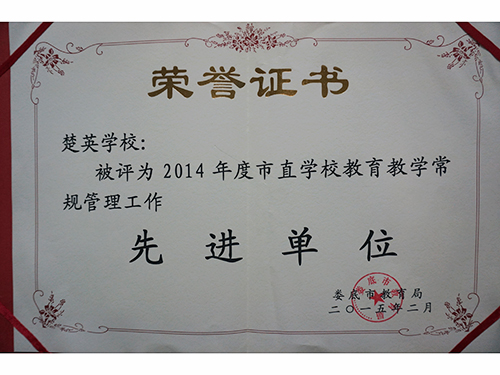 荣誉证书
楚英学校：
被评为2014年度市直学校教育教学常
规管理工作
先进单位
娄底市教育局
二〇一五年二月